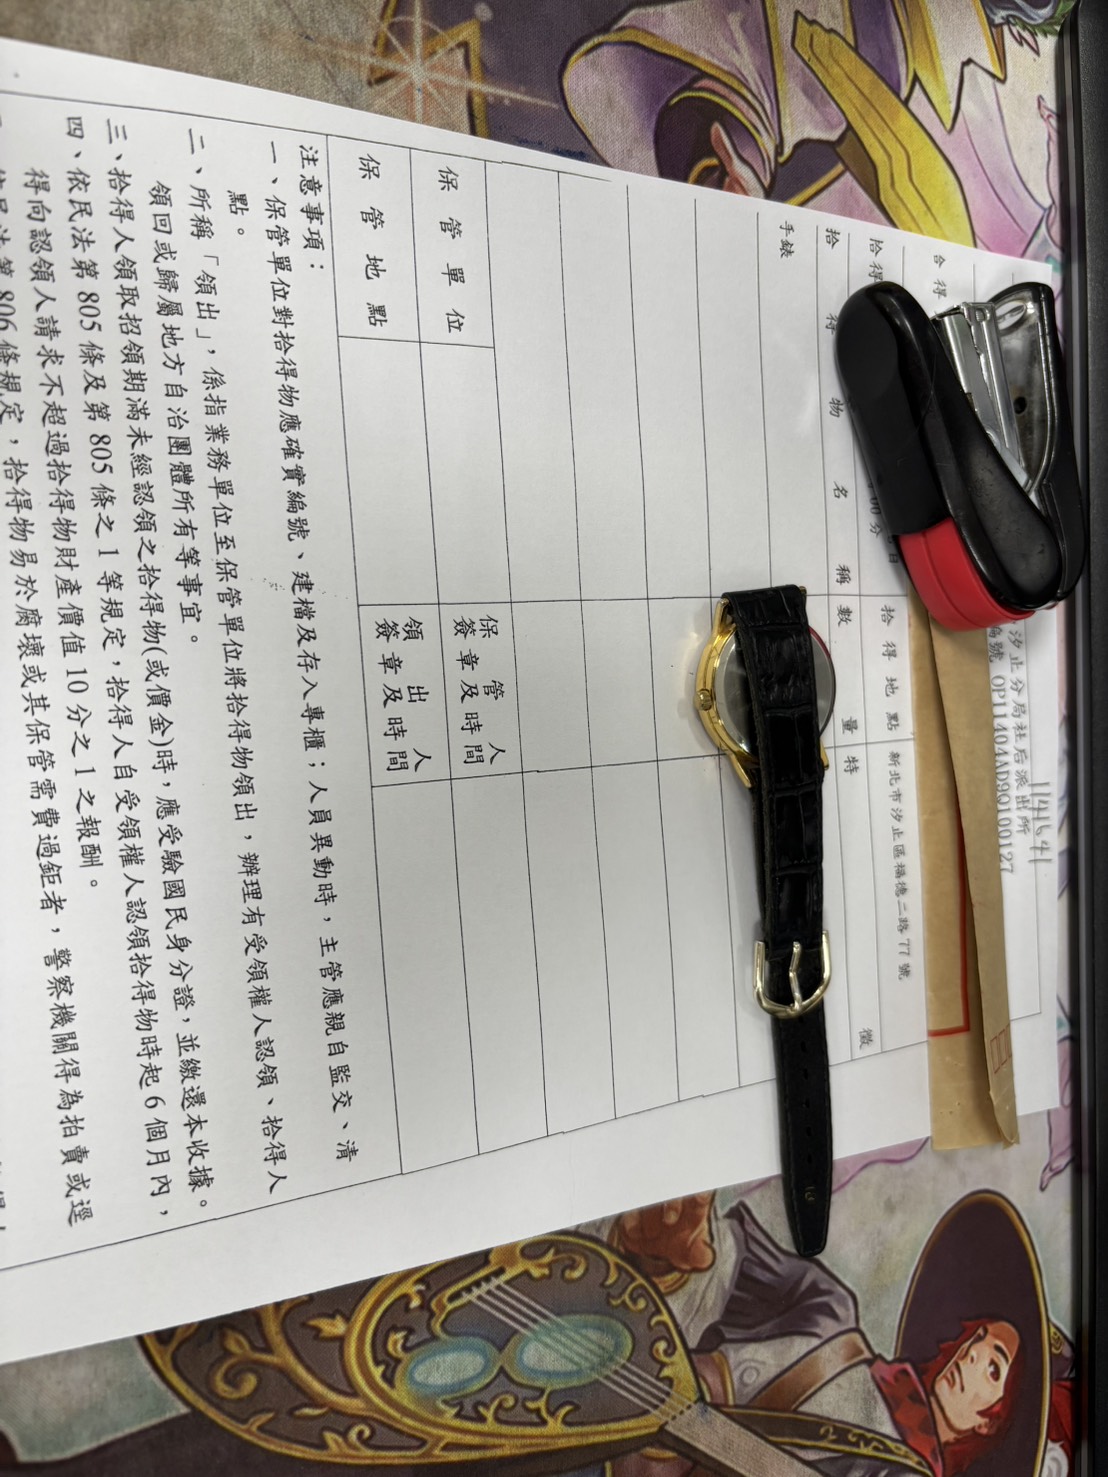 11464
汐止分局社后派出所
編號 OP11404AD90100127
拾得
00 分
拾得地點 新北市汐止區福德二路 77 號
拾得物名稱 數量 特徵
手錶
保管單位
保管人簽章及時間
保管地點
領出人簽章及時間
注意事項：
一、保管單位對拾得物應確實編號、建檔及存入專櫃；人員異動時，主管應親自監交、清
點。
二、所稱「領出」，係指業務單位至保管單位將拾得物領出，辦理有受領權人認領、拾得人
領回或歸屬地方自治團體所有等事宜。
三、拾得人領取招領期滿未經認領之拾得物(或價金)時，應受驗國民身分證，並繳還本收據。
四、依民法第 805 條及第 805 條之 1 等規定，拾得人自受領權人認領拾得物時起 6 個月內，
得向認領人請求不超過拾得物財產價值 10 分之 1 之報酬。
806 條規定，拾得物易於腐壞或其保管需費過鉅者，警察機關得為拍賣或逕